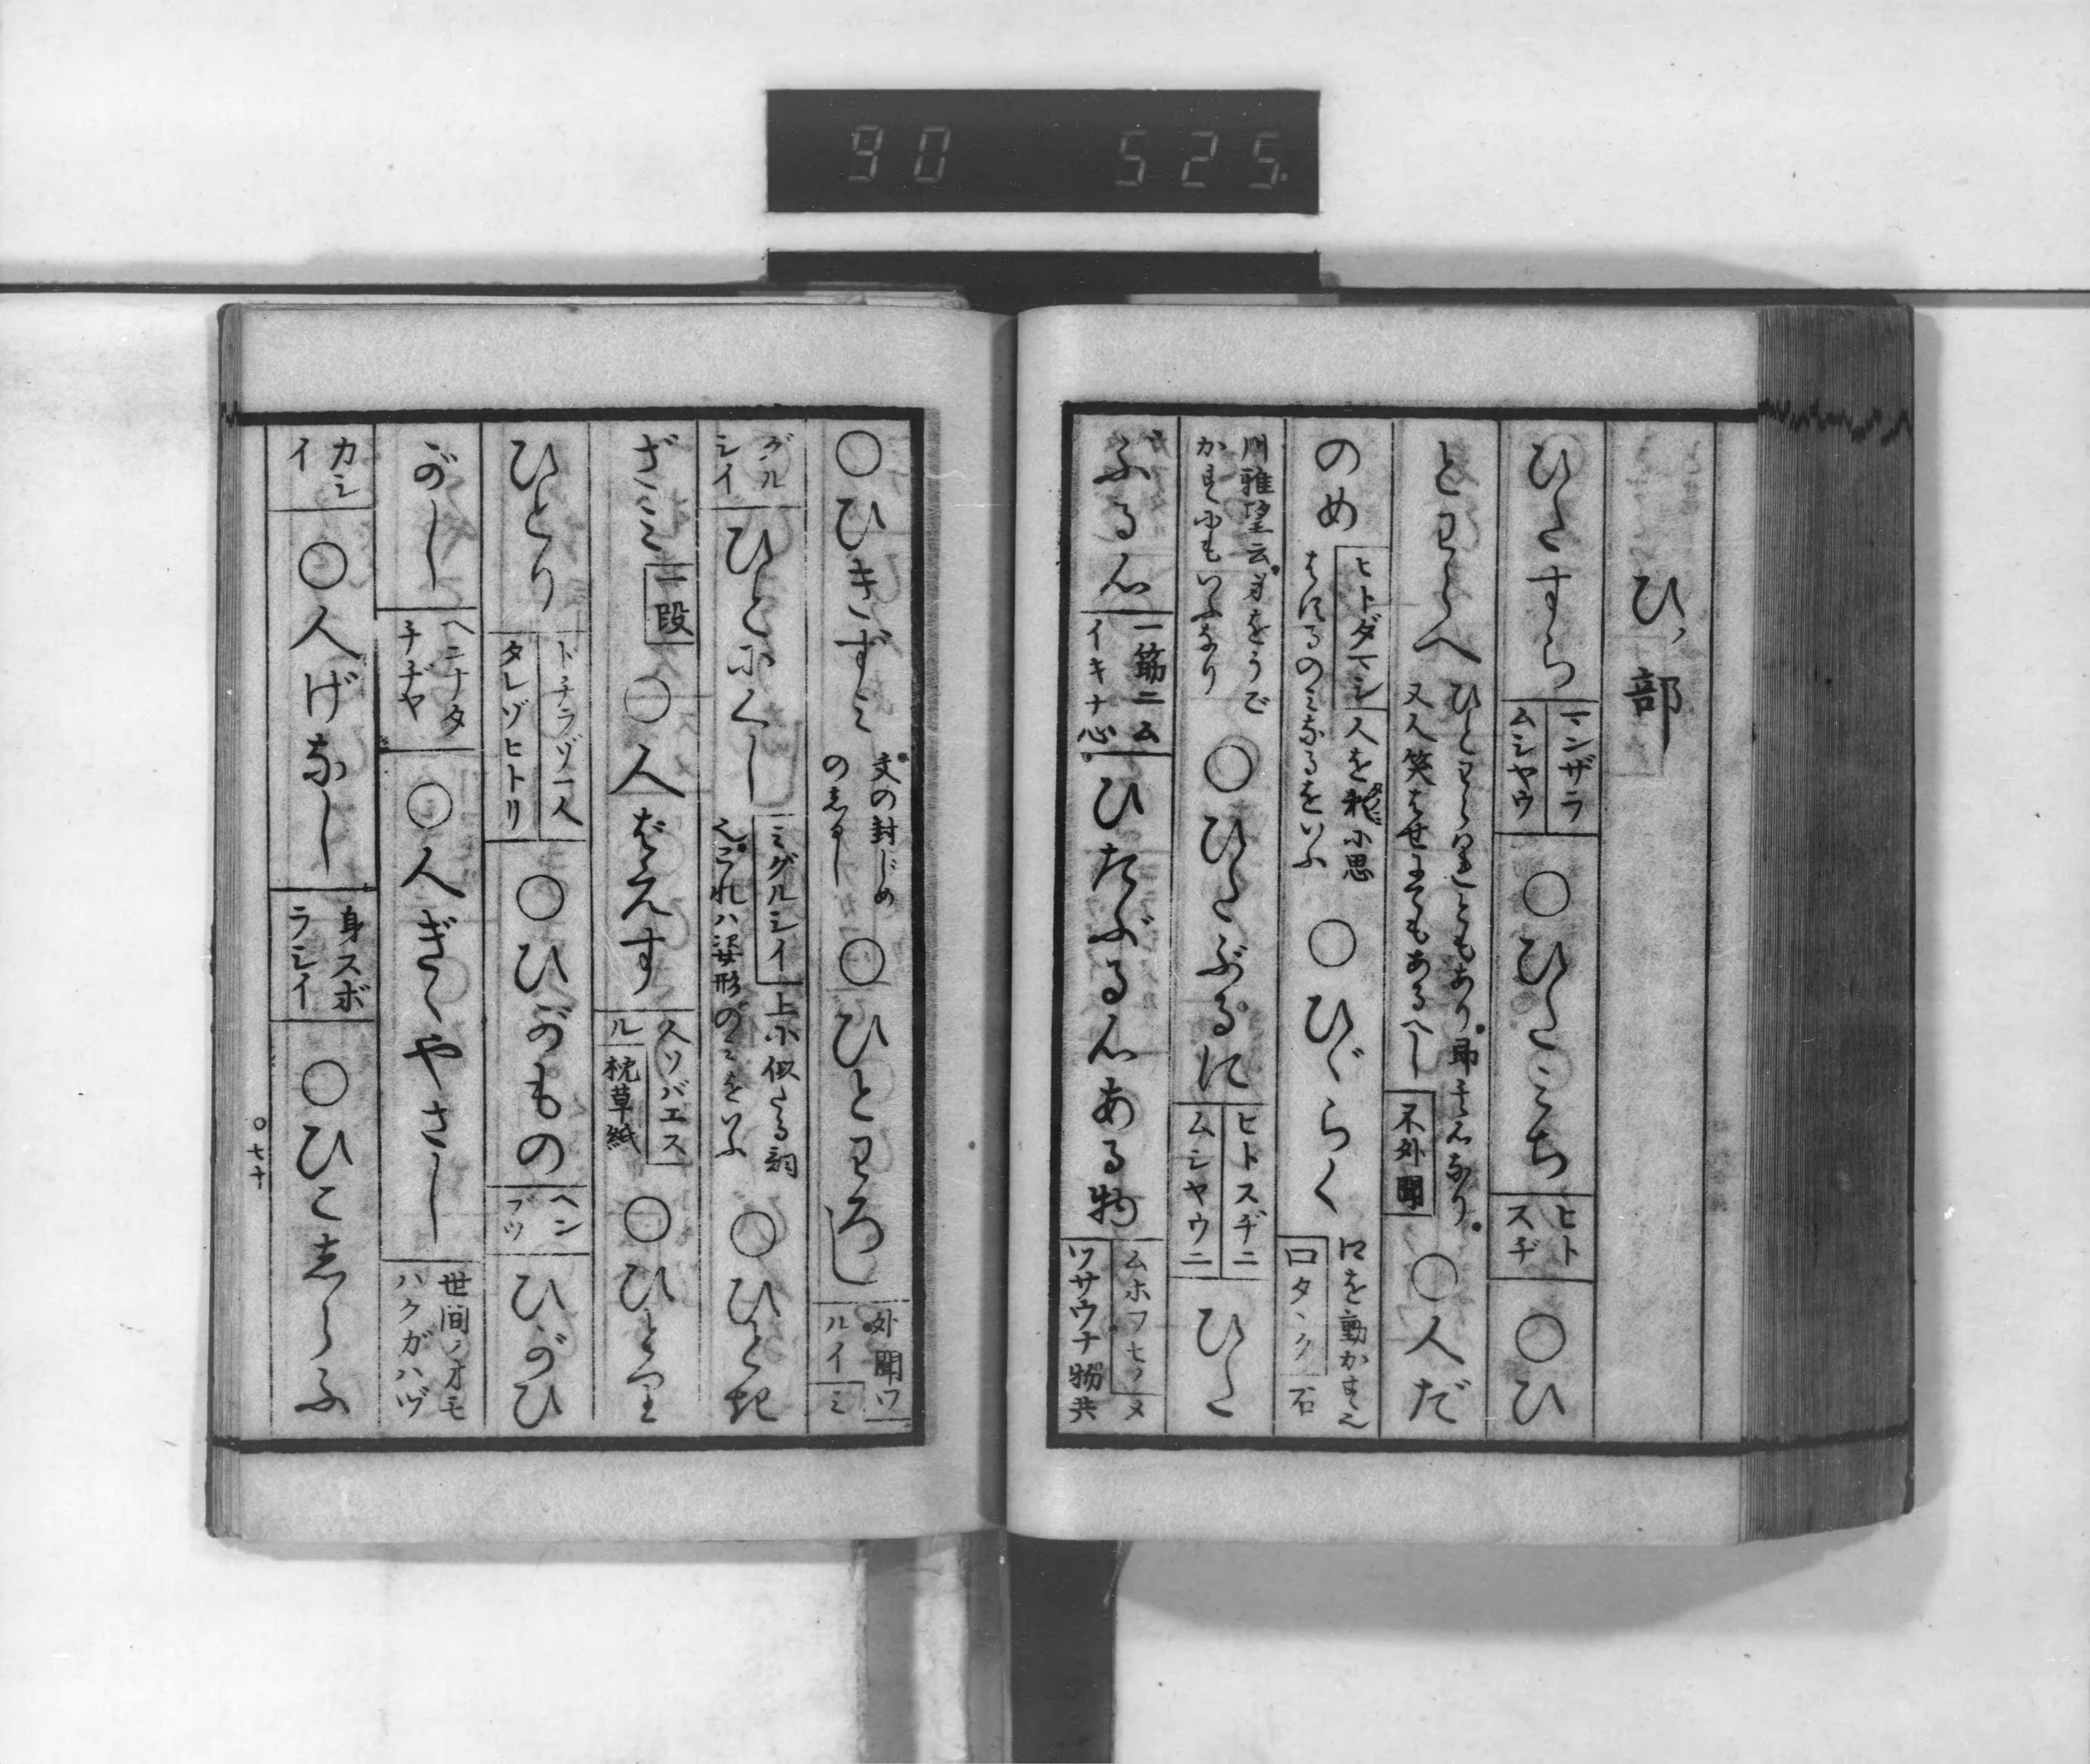 90 525
ひノ部
ひたすら マンザラ ムシヤウ ○ひたみち ヒトスヂ ○ひ
とわらへ ひとわらはれともあり。即其心なり。 又人笑はせにてもあるへし 不外聞 ○人だ
のめ ヒトダマシ 人を我に思 はするのみなるをいふ ○ひぐらく 口を動かす也 口タヽク 石
川雅望云。身をうで か見にもいふなり ○ひたぶるに ヒトスヂニ ムシヤウニ ひた
ふる心 一筋ニム イキナ心 ひたぶる心ある物 ワサウナ物共
○ひきずみ 文の封じめ のしるし ○ひとわろし 外聞ワルイ ミ
グルシイ ひとにくし ミグルシイ 上に似たる詞 也。これハ姿形のみをいふ ○ひとき
ざみ 一段 ○人ばえす 人ソバエスル 枕草紙 ○ひとやり
ひとり ドチラゾ一人 タレゾヒトリ ○ひがもの ヘンブツ ひがひ
がし ヘニナタ子ヂヤ ○人ぎゝやさし 世間ノオモハクガハヅ
カシイ ○人げなし 身スボラシイ ○ひこしらふ
○七十